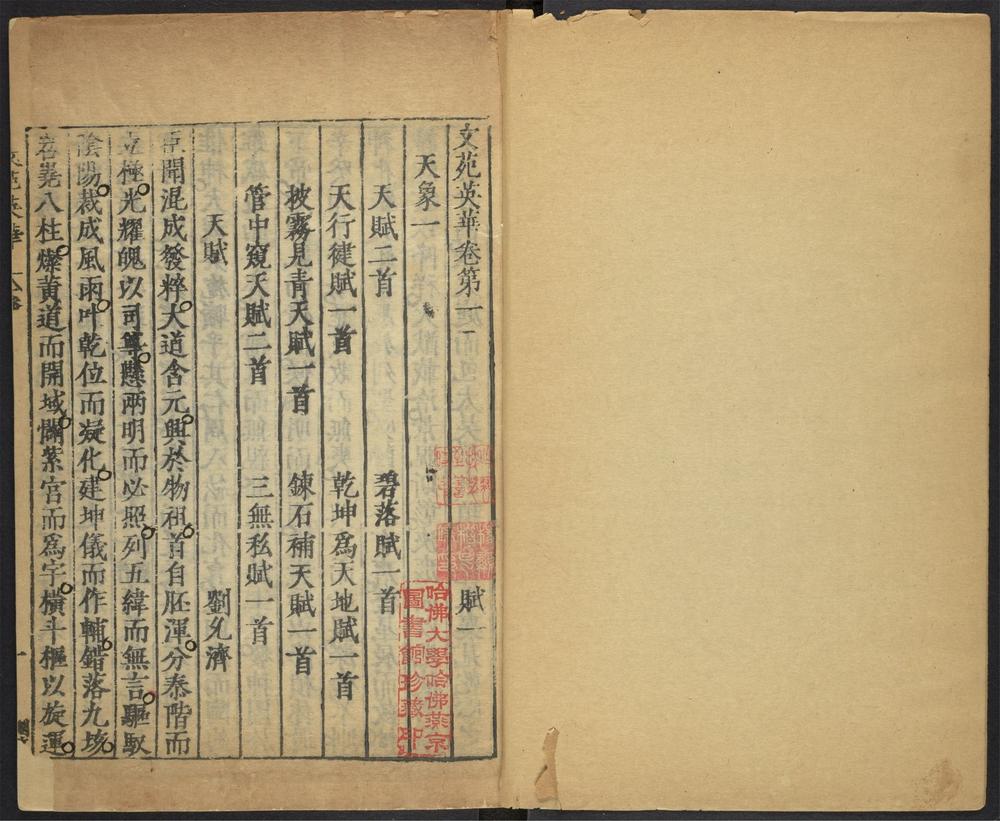 文苑英華卷第一　賦一
天象一
天賦二首　碧落賦一首
天行健賦一首　乾坤為天地賦一首
披霧見青天賦一首　鍊石補天賦一首
管中窺天賦二首　三無私賦一首
天賦　劉允濟
臣聞混成發粹大道含元興於物祖首自胚渾分泰階而
立極光耀魄以司尊懸兩明而必照列五緯而無言驅馭
陰陽裁成風雨叶乾位而凝化建坤儀而作輔錯落九垓
岧嶤八柱燦黃道而開域闢紫宮而為宇橫斗樞以旋運
哈佛大學哈佛燕京
圖書館珍藏印